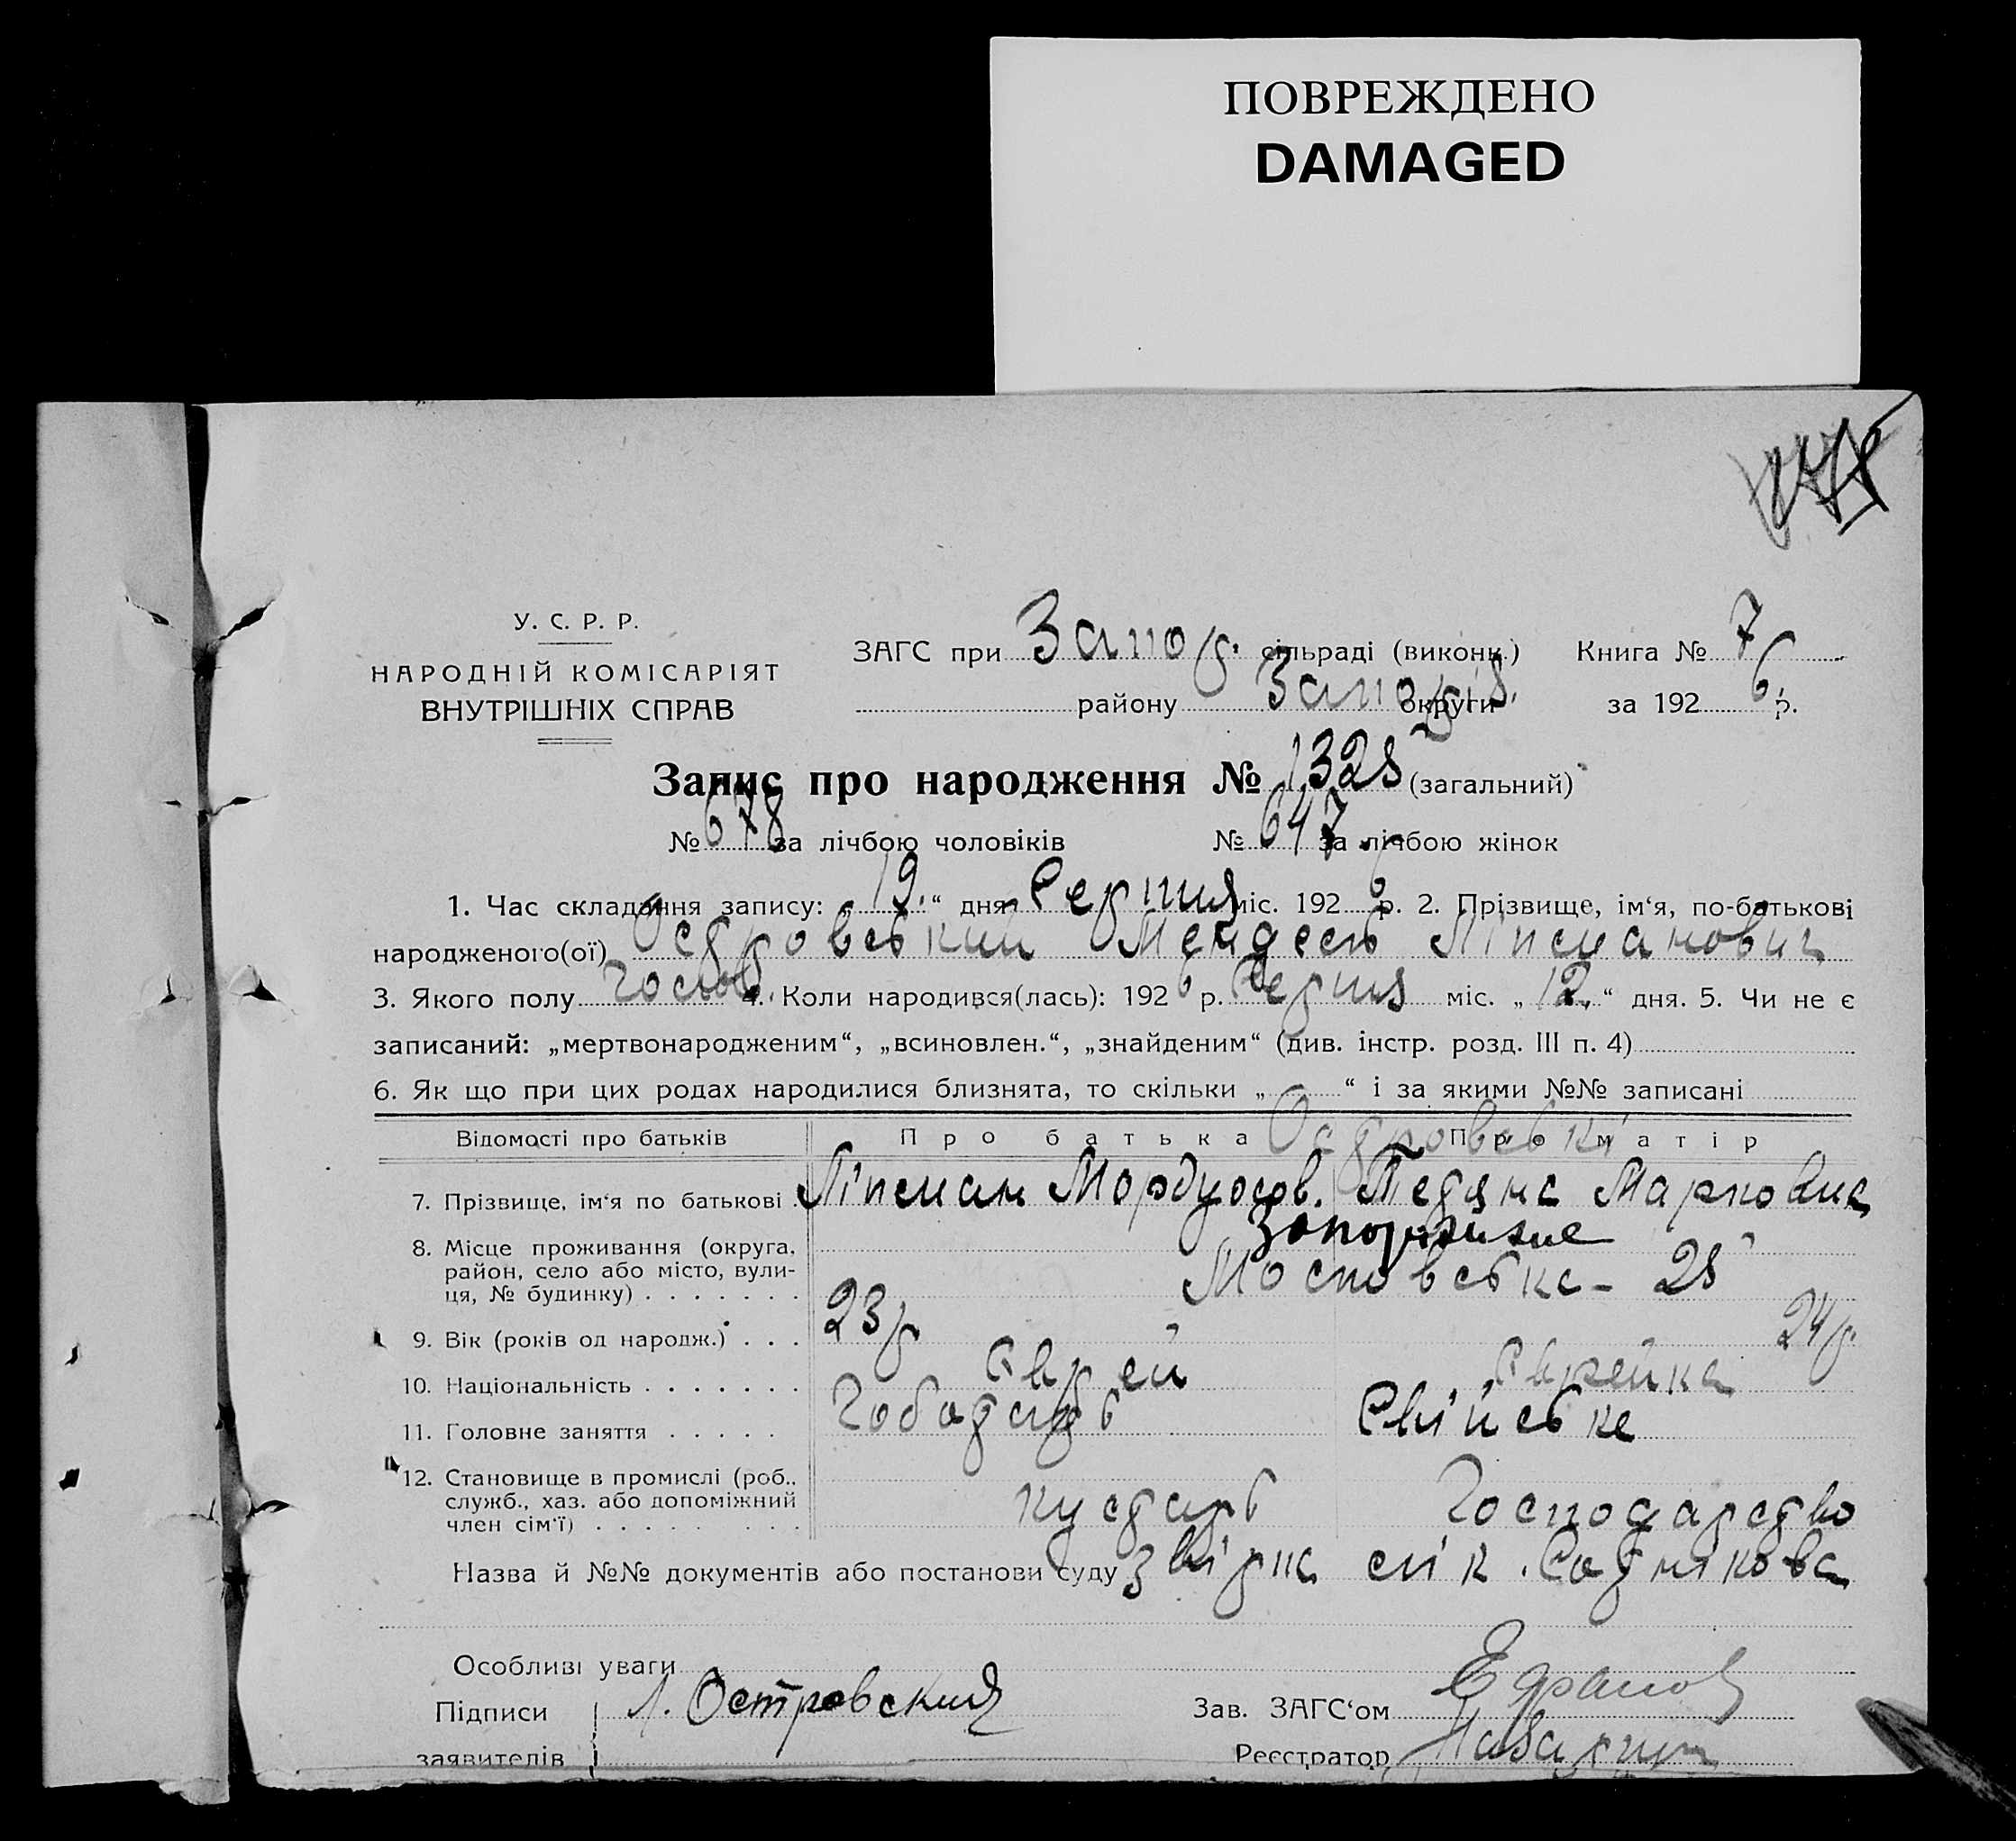 ПОВРЕЖДЕНО
DAMAGED
У. С. Р. Р.
НАРОДНІЙ КОМІСАРІЯТ
ВНУТРІШНІХ СПРАВ
ЗАГС при Запор. сільраді (виконк.) Книга № 7
району Запоріз. округи за 1926 р.
Запис про народження № 1325 (загальний)
№ 678 за лічбою чоловіків № 647 за лічбою жінок
1. Час складання запису: „19.“ дня Серпня міс. 1926 р. 2. Прізвище, ім‘я, по-батькові
народженого(ої) Островський Мендель Ліпманович
3. Якого полу чолов. 4. Коли народився(лась): 1926 р. Серпня міс. „12.“ дня. 5. Чи не є
записаний: „мертвонародженим“, „всиновлен.“, „знайденим“ (див. інстр. розд. III п. 4)
6. Як що при цих родах народилися близнята, то скільки „ “ і за якими №№ записані
Відомості про батьків Про батька Про матір
Островські
7. Прізвище, ім‘я по батькові . Ліпман Мордухов. Марковна
8. Місце проживання (округа, район, село або місто, вулиця, № будинку) . . . . . . . Запоріжжє
Московська - 25
9. Вік (років од народж.) . . . 23 р 24 р.
10. Національність . . . . . . . Єврей Єврейка
11. Головне заняття . . . . . Чоботарь Свійське
12. Становище в промислі (роб., служб., хаз. або допоміжний член сім‘ї) . . . . . . . . . кустарь Господарство
Назва й №№ документів або постанови суду
Особливі уваги
Підписи Л. Островский Зав. ЗАГС‘ом
заявителів Реєстратор